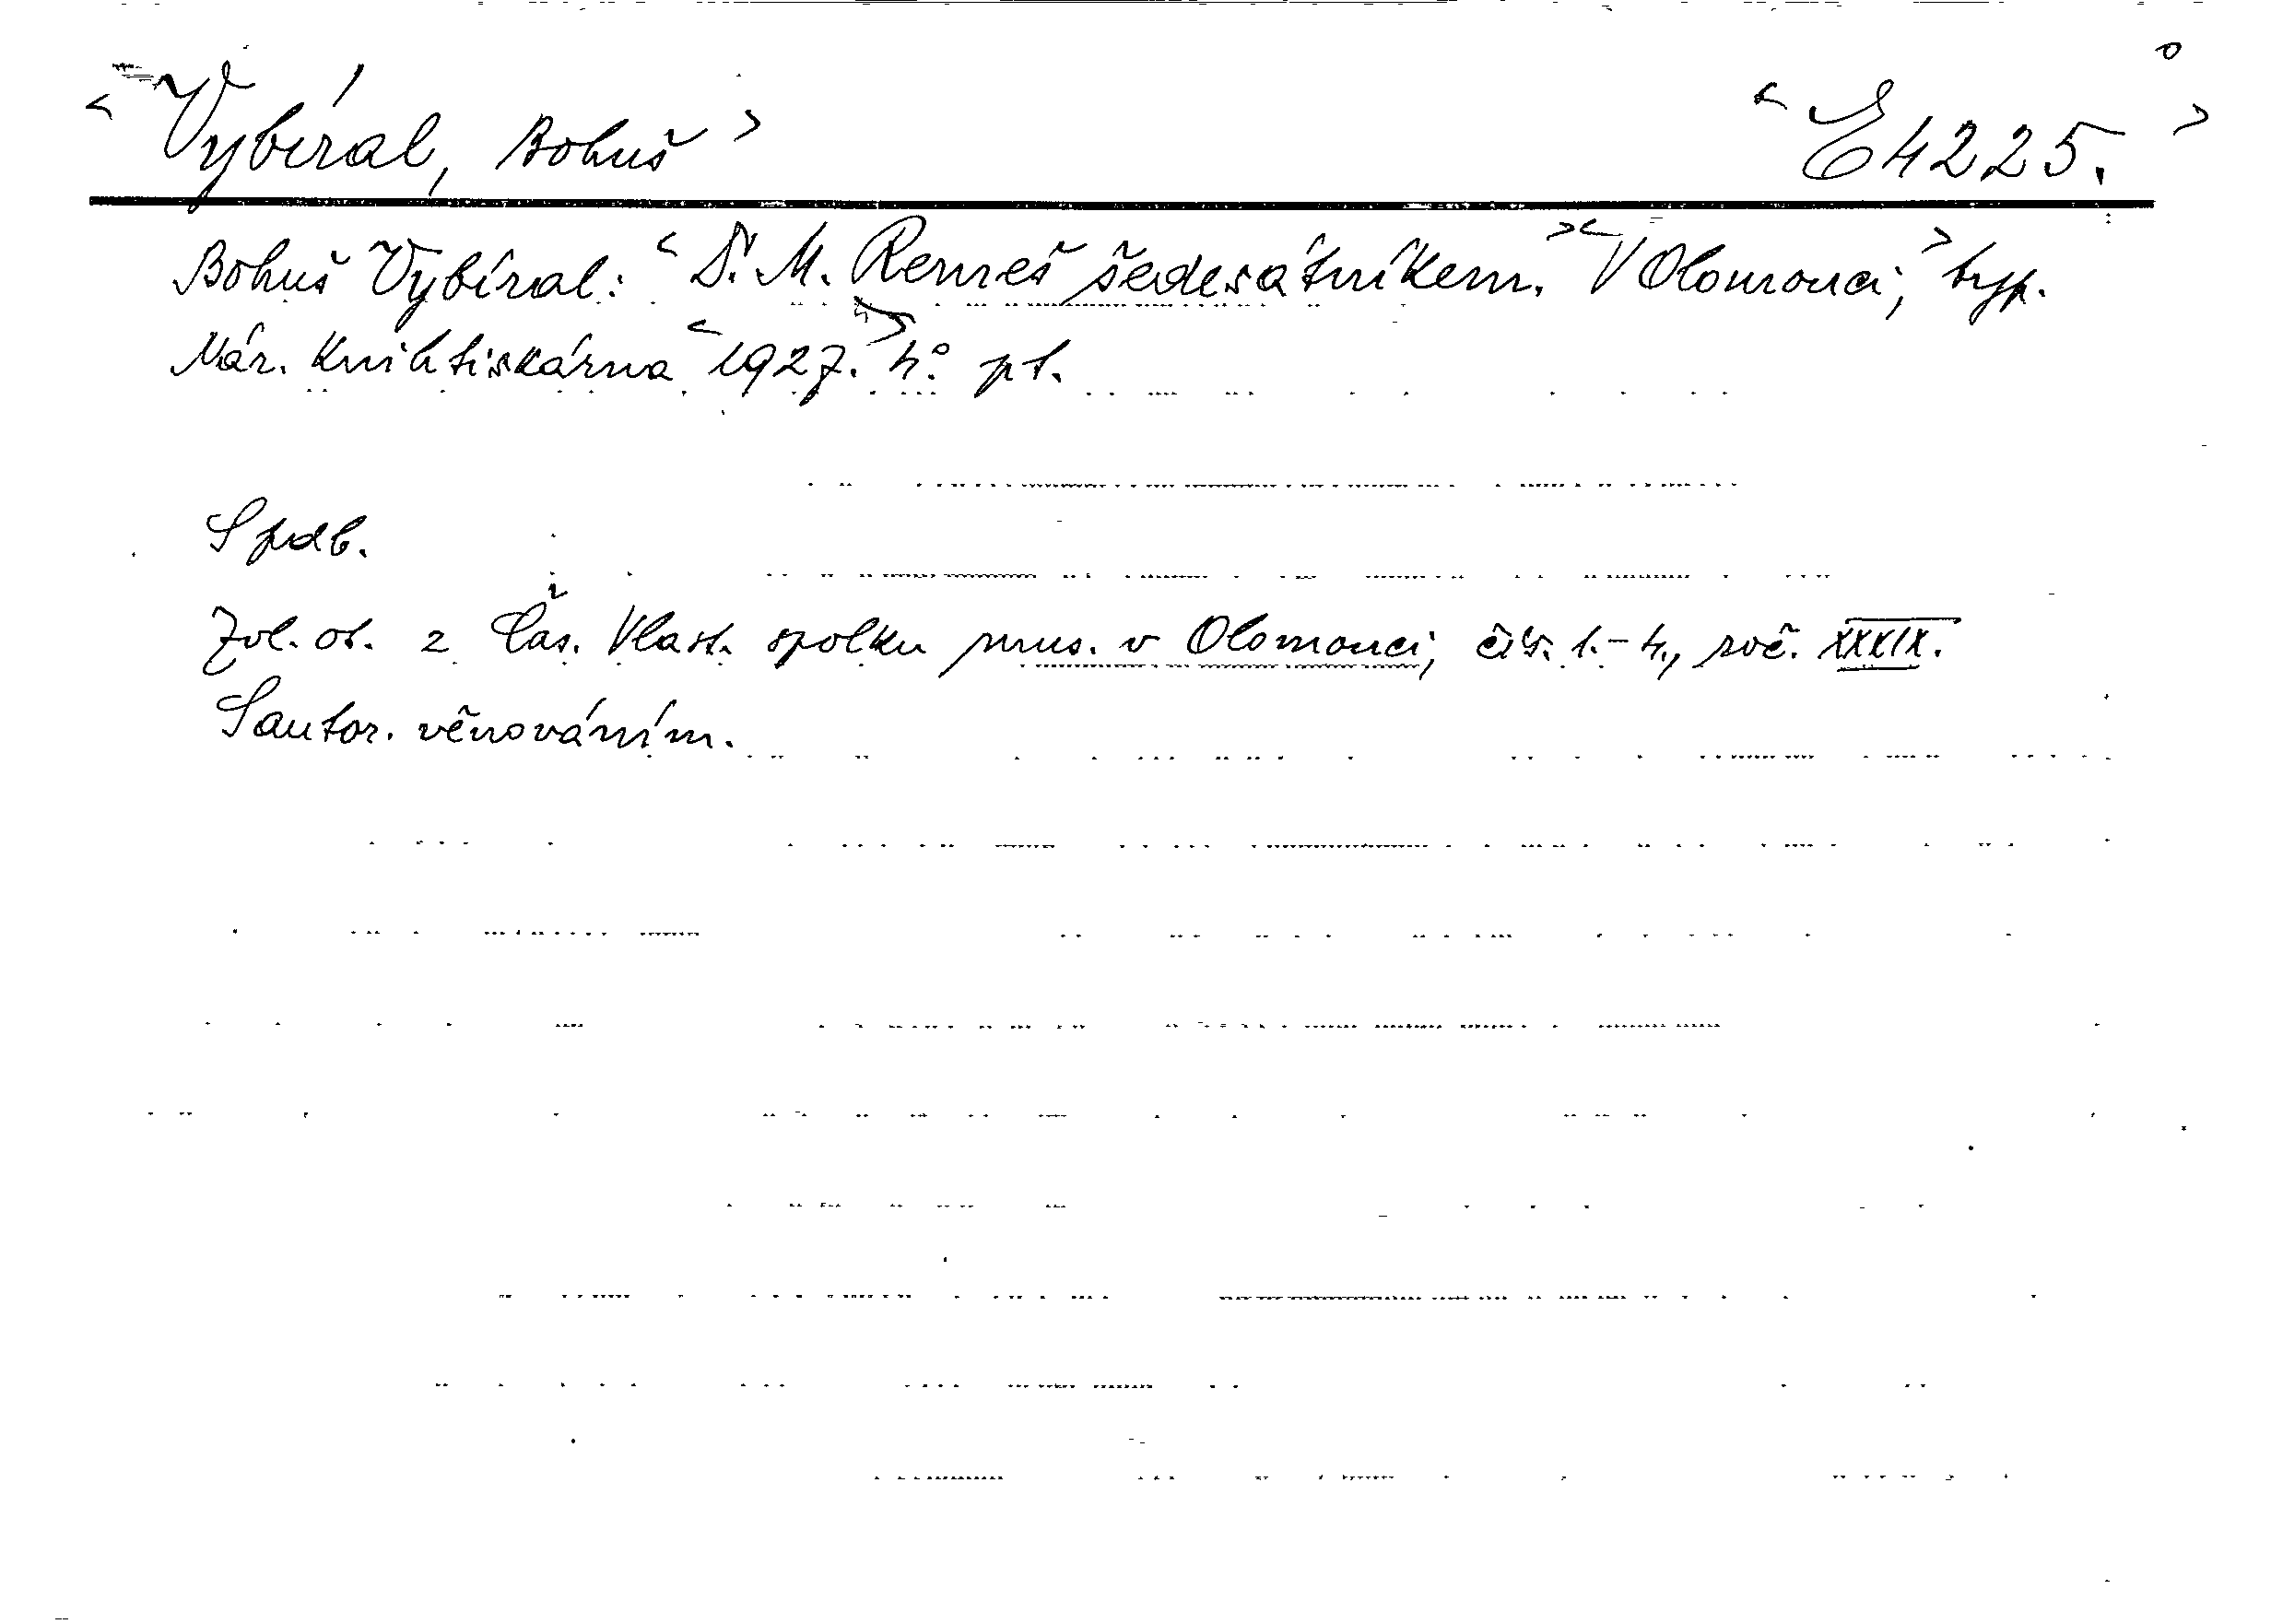 o
< Vybíral, Bohuš > < E 4225. >
Bohuš Vybíral: < Dr. M. Remeš šedesátníkem. >< V Olomouci, > typ.
Nár. knihtiskárna < 1927. > 4° pt.
S podb.
Zvl. ot. z Čas. Vlast. spolku mus. v Olomouci, čís. 1.-4., roč. XXXIX.
S autor. věnováním.